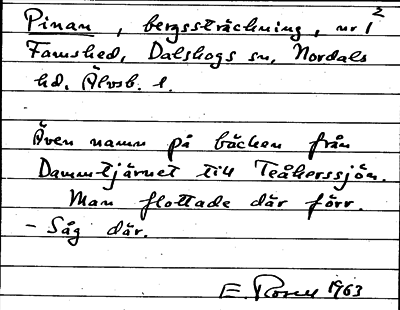 Pinan, bergssträckning, nr 1²
Famshed, Dalskogs sn, Nordals
hd, Älvsb. l.
Även namn på bäcken från
Dammtjärnet till Teåkerssjön.
Man flottade där förr.
- Såg där.
E. 1963